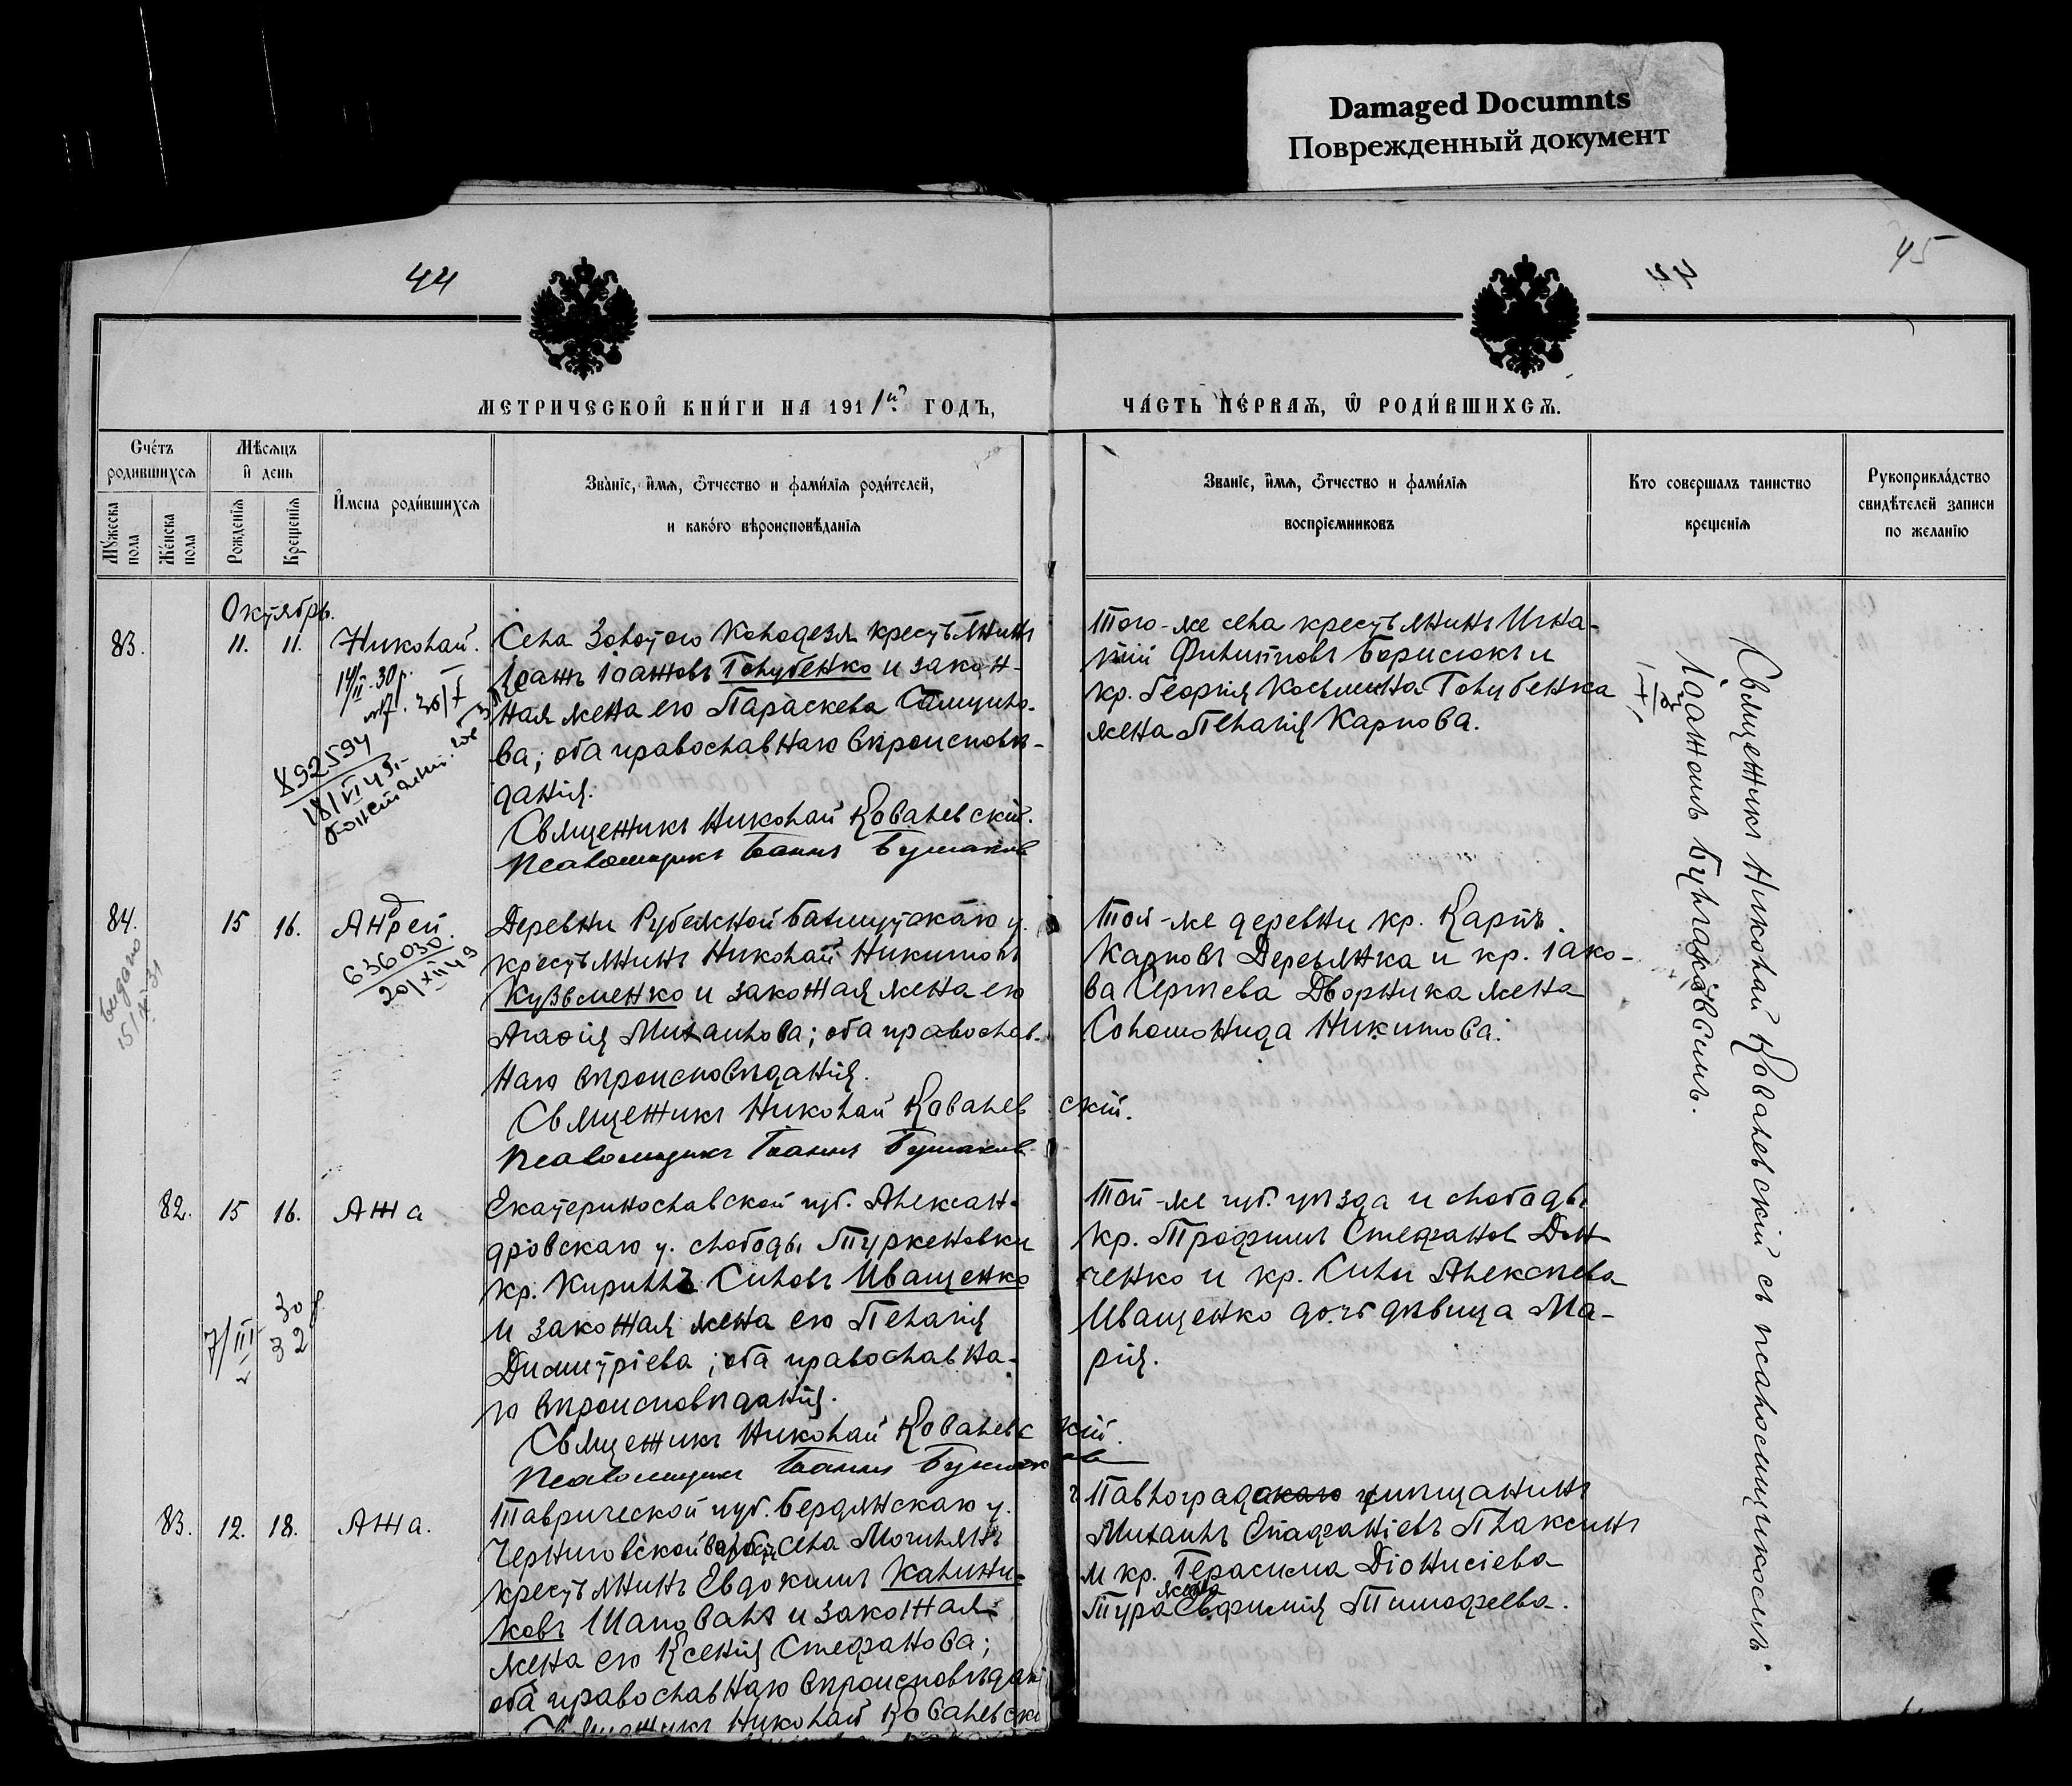 Damaged Documnts
Поврежденный документ
44
44
45
МЕТРИЧЕСКОЙ КНИ́ГИ НА 1911й ГОДЪ,
ЧА́СТЬ ПЕ́РВАѦ, Ѿ РОДИ́ВШИХСѦ.
Сче́тъ
родившихсѧ
Мѣсѧцъ
и день
Му́жеска
пола
Же́нска
пола
Рожденіѧ
Крещеніѧ
Имена роди́вшихсѧ
Зва́ніе, имѧ, ѻтчество и фами́лїѧ роди́телей,
и како́го вѣроисповѣ́данїѧ
Званіе, имѧ, ѻтчество и фами́лїѧ
воспрїемниковъ
Кто совершалъ таинство
крещенїѧ
Рукоприкла́дство
свидѣтелей записи
по желанїю
Октябрь.
83.
11.
11.
Николай.
892594
18/VI 45.
Села Золотого Колодезя крестьянинъ
Іоаннъ Іоанновъ Голубенко и закон-
ная жена его Параскева
ва; оба православнаго вѣроисповѣ-
данія.
Священникъ Николай Ковалевскій.
Псаломщикъ Іоаннъ
Того-же села крестьянинъ Игна-
тій Филипповъ Борисюкъ и
кр. Георгія Косьмина Голубенка
жена Пелагія Карпова.
84.
15
16.
Андрей.
636030
20/XII 49
выдано
Деревни Рубежной Бахмутскаго у.
крестьянинъ Николай Никитовъ
Кузьменко и законная жена его
Агафія Михаилова; оба православ-
наго вѣроисповѣданія.
Священникъ Николай Ковалевскій.
Псаломщикъ Іоаннъ
Той-же деревни кр. Карпъ
Карповъ Деревянка и кр. Іако-
ва Сергѣева Дворника жена
Соломонида Никитова.
82.
15
16.
Анна
7/III
32
Екатеринославской губ. Алексан-
дровскаго у. слободы Туркеновки
кр. Кириллъ Силовъ Иващенко
и законная жена его Пелагія
Димитріева; оба православна-
го вѣроисповѣданія.
Священникъ Николай Ковалевскій.
Псаломщикъ Іоаннъ
Той-же губ. уѣзда и слободы
кр. Трофимъ Стефановъ Дон-
ченко и кр. Силы Алексѣева
Иващенко дочь дѣвица Ма-
рія.
83.
12.
18.
Анна.
Таврической губ. Бердянскаго у.
Черниговской вол. села Могилянъ
крестьянинъ Евдокимъ Калини-
ковъ Шаповалъ и законная
жена его Ксенія Стефанова;
оба православнаго вѣроисповѣдані
Священникъ Николай Ковалевскі
г. Павлоградскаго мѣщанинъ
Михаилъ Епафаніевъ Плаксинъ
и кр. Герасима Діонисіева
Тура жена Евфимія Тимофеева.
Священникъ Николай Ковалевскій съ псаломщикомъ
Іоанномъ